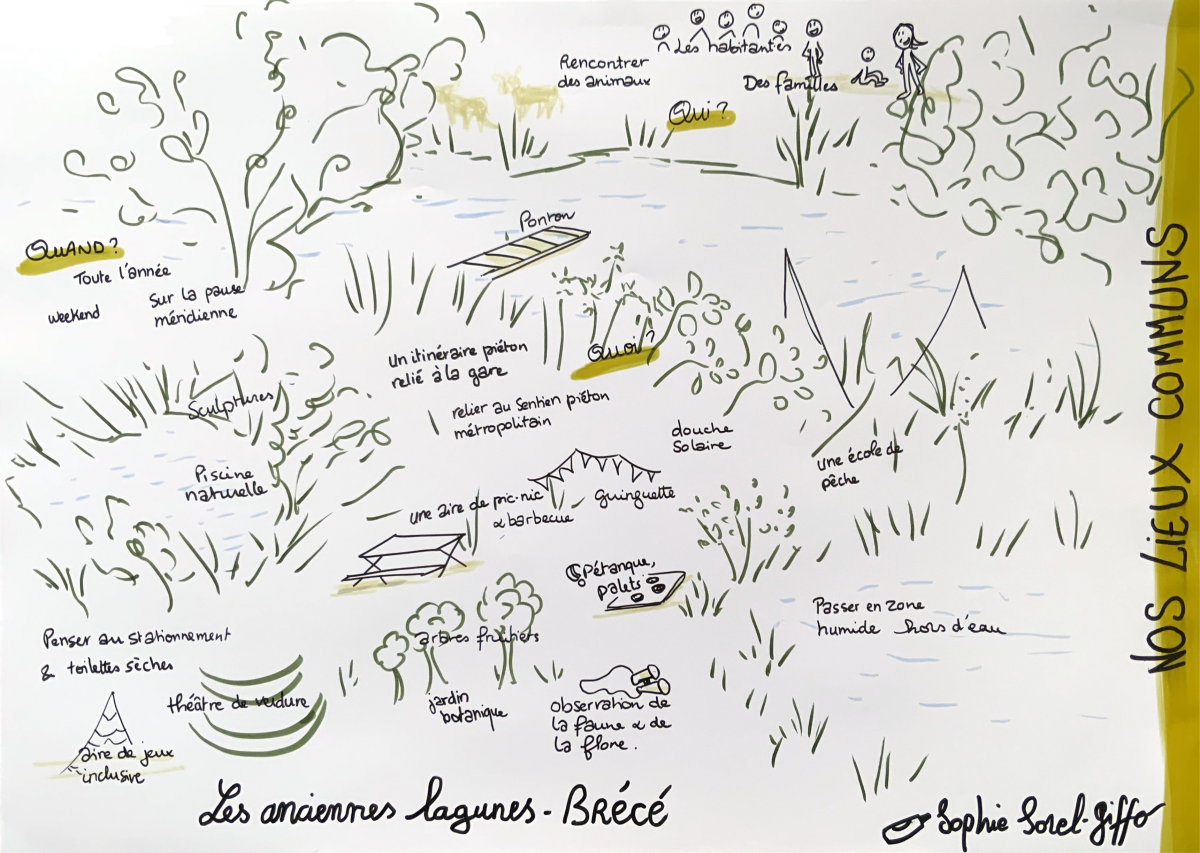 Les habitantes
Rencontrer
des animaux
Des familles
Qui ?
QUAND ?
Toute l'année
weekend
Sur la pause
méridienne
Ponton
Quoi ?
Un itinéraire piéton
relié à la gare
relier au sentien piéton
métropolitain
Sculptures
douche
Solaire
une école de
pêche
Piscine
naturelle
une aire de pic-nic
& barbecue
guinguette
Pétanque,
palets
Passer en zone
humide hors d'eau
Penser au stationnement
& toilettes sèches
arbres fruitiers
théâtre de verdure
jardin
botanique
observation de
la faune & de
la flore.
aire de jeux
inclusive
Les anciennes lagunes - BRÉCÉ
Sophie Sorel-Giffo
NOS LIEUX COMMUNS